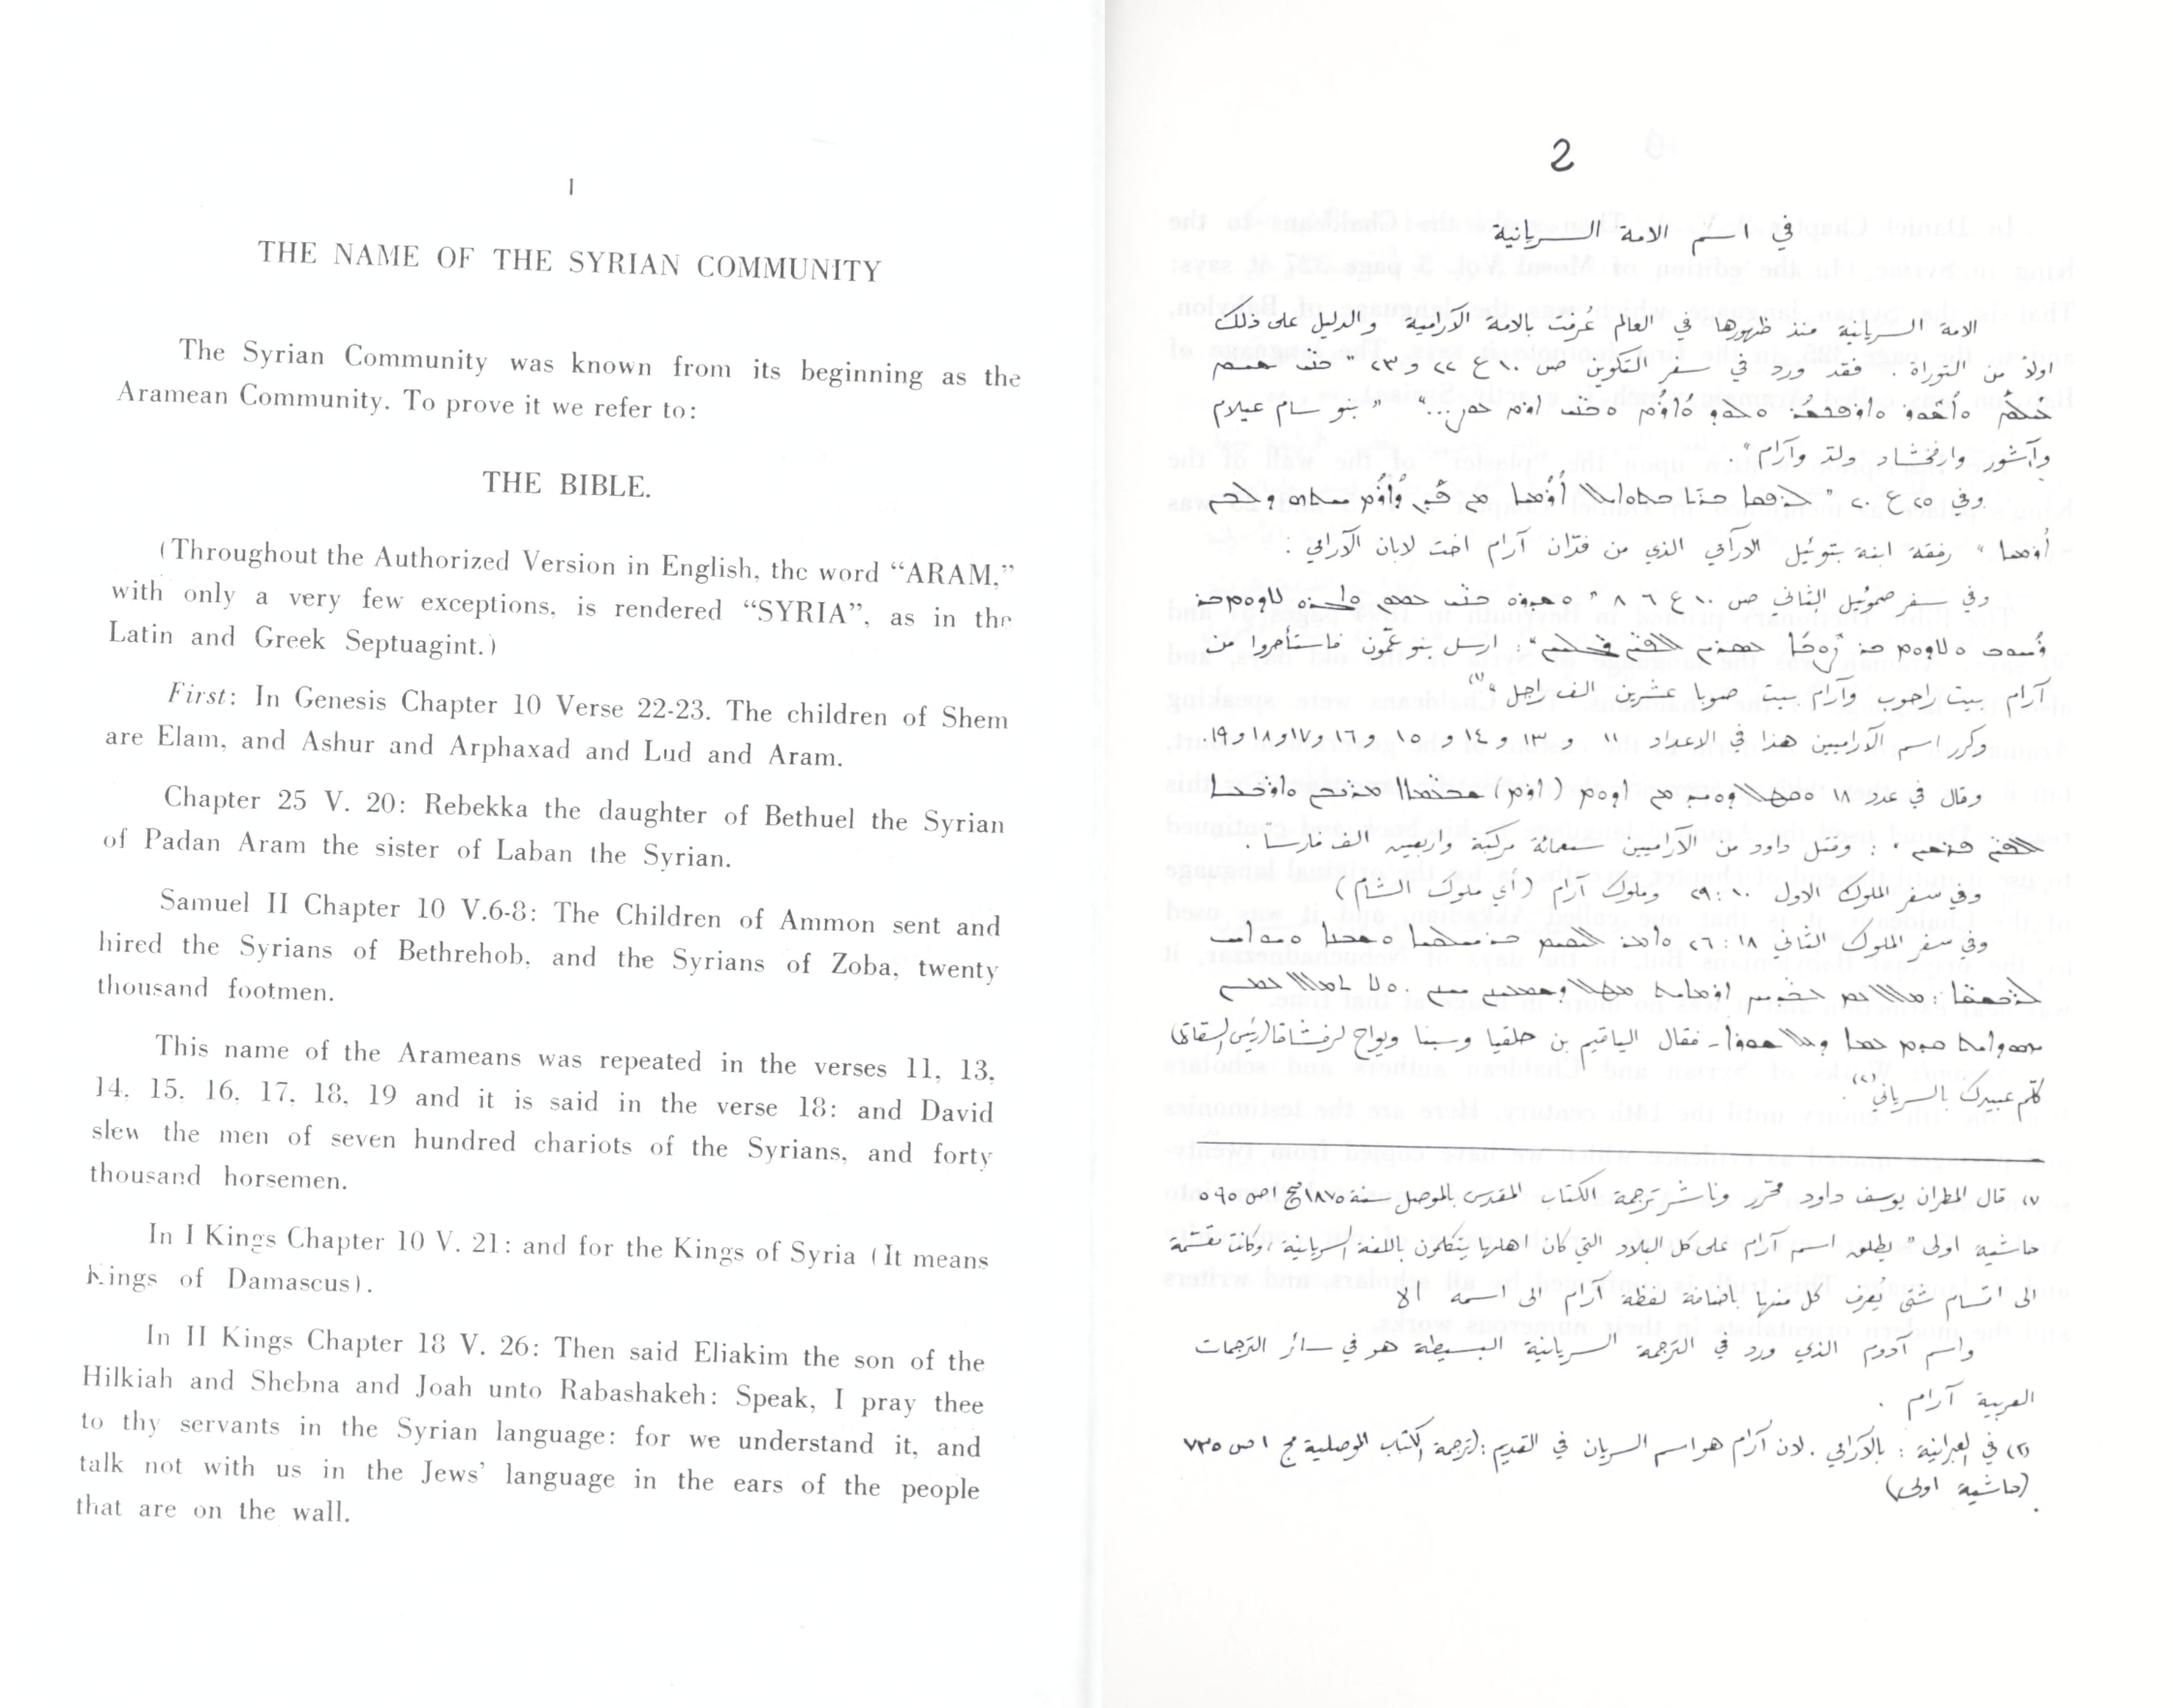 1
THE NAME OF THE SYRIAN COMMUNITY
The Syrian Community was known from its beginning as the
Aramean Community. To prove it we refer to:
THE BIBLE.
(Throughout the Authorized Version in English, the word “ARAM,”
with only a very few exceptions, is rendered “SYRIA”, as in the
Latin and Greek Septuagint.)
First: In Genesis Chapter 10 Verse 22-23. The children of Shem
are Elam, and Ashur and Arphaxad and Lud and Aram.
Chapter 25 V. 20: Rebekka the daughter of Bethuel the Syrian
of Padan Aram the sister of Laban the Syrian.
Samuel II Chapter 10 V.6-8: The Children of Ammon sent and
hired the Syrians of Bethrehob, and the Syrians of Zoba, twenty
thousand footmen.
This name of the Arameans was repeated in the verses 11, 13,
14, 15, 16, 17, 18, 19 and it is said in the verse 18: and David
slew the men of seven hundred chariots of the Syrians, and forty
thousand horsemen.
In I Kings Chapter 10 V. 21: and for the Kings of Syria (It means
Kings of Damascus).
In II Kings Chapter 18 V. 26: Then said Eliakim the son of the
Hilkiah and Shebna and Joah unto Rabashakeh: Speak, I pray thee
to thy servants in the Syrian language: for we understand it, and
talk not with us in the Jews’ language in the ears of the people
that are on the wall.
2
في اسم الامة السريانية
الامة السريانية منذ ظهورها في العالم عُرفت بالامة الآرامية والدليل على ذلك
اولا من التوراة . فقد ورد في سفر التكوين ص ١٠ ع ٢٢ و ٢٣ "
" بنو سام عيلام
وآشور وارفخشاد ولد وآرام " .
وفي ٢٥ ع ٢٠ "
" رفقة ابنة بتوئيل الارامي الذي من فدّان آرام اخت لابان الآرامي :
وفي سفر صموئيل الثاني ص ١٠ ع ٦ ٨ "
" : ارسل بنو عمّون فاستأجروا من
آرام بيت راحوب وآرام بيت صوبا عشرين الف راجل " (١)
وكرر اسم الآراميين هذا في الاعداد ١١ و ١٣ و ١٤ و ١٥ و ١٦ و ١٧ و ١٨ و ١٩.
وقال في عدد ١٨
: وقتل داود من الآراميين سبعمائة مركبة واربعين الف فارساً .
وفي سفر الملوك الاول ١٠ : ٢٩ وملوك آرام ( أي ملوك الشام )
وفي سفر الملوك الثاني ١٨ : ٢٦
فقال الياقيم بن حلقيا وسبنا ويواح لرفشاقا (رئيس السقاة)
كلّم عبيدك بالسرياني (٢) .
١) قال المطران يوسف داود محرّر وناشر ترجمة الكتاب المقدس بالموصل سنة ١٨٧٥ مج ١ ص ٥٩٥
حاشية اولى " يطلق اسم آرام على كل البلاد التي كان اهلها يتكلمون باللغة السريانية ، وكانت مقسّمة
الى اقسام شتى يُعرف كل منها باضافة لفظة آرام الى اسمه الا
واسم آدوم الذي ورد في الترجمة السريانية البسيطة هو في سائر الترجمات
العربية آرام .
(٢) في العبرانية : بالآرامي . لان آرام هو اسم السريان في القديم : (ترجمة الكتاب الموصلية مج ١ ص ٧٣٥
(حاشية اولى)